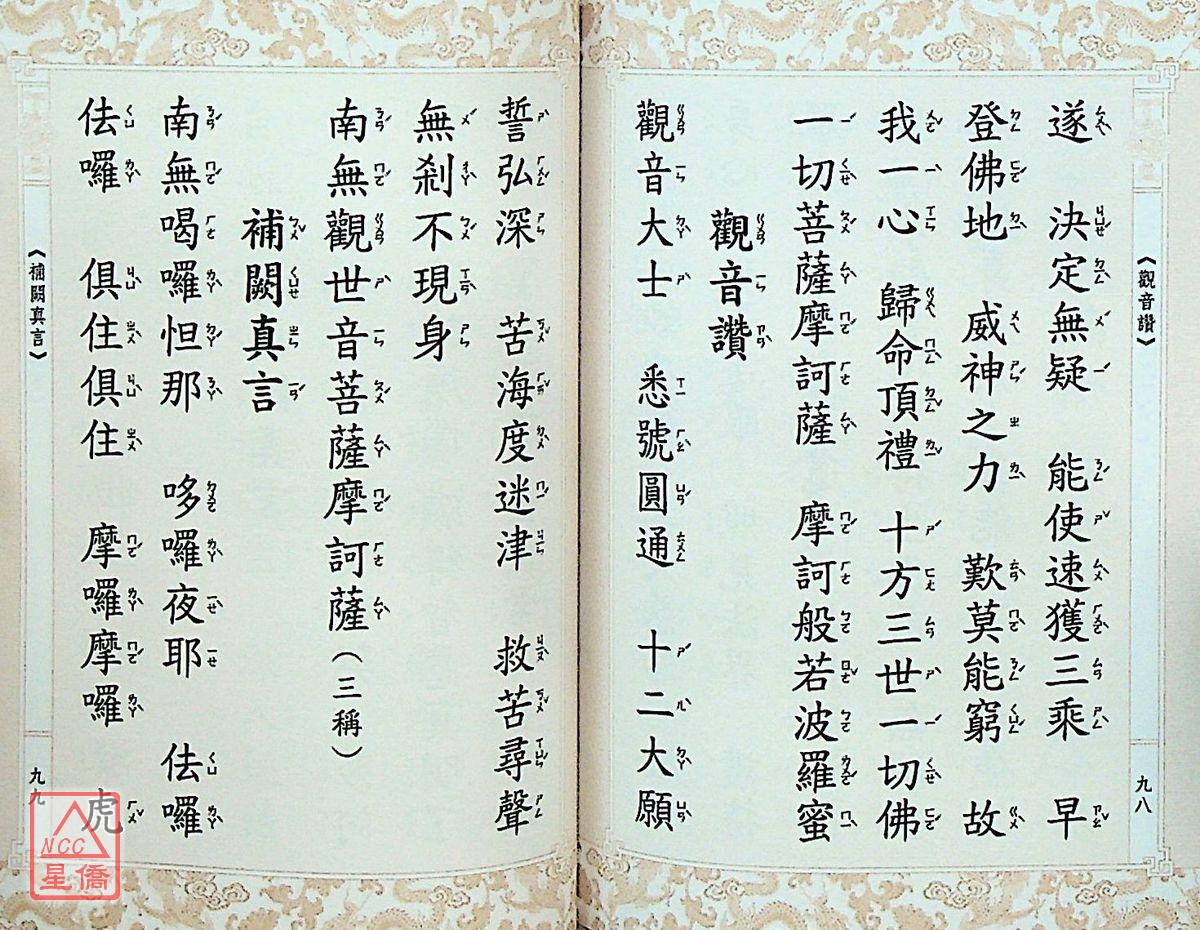 《觀音讚》
九八
遂　決定無疑　能使速獲三乘　早
登佛地　威神之力　歎莫能窮　故
我一心　歸命頂禮　十方三世一切佛
一切菩薩摩訶薩　摩訶般若波羅蜜
觀音讚
觀音大士　悉號圓通　十二大願
誓弘深　苦海度迷津　救苦尋聲
無剎不現身
南無觀世音菩薩摩訶薩（三稱）
補闕真言
南無喝囉怛那　哆囉夜耶　佉囉
佉囉　俱住俱住　摩囉摩囉　虎
《補闕真言》
九九
NCC
星僑